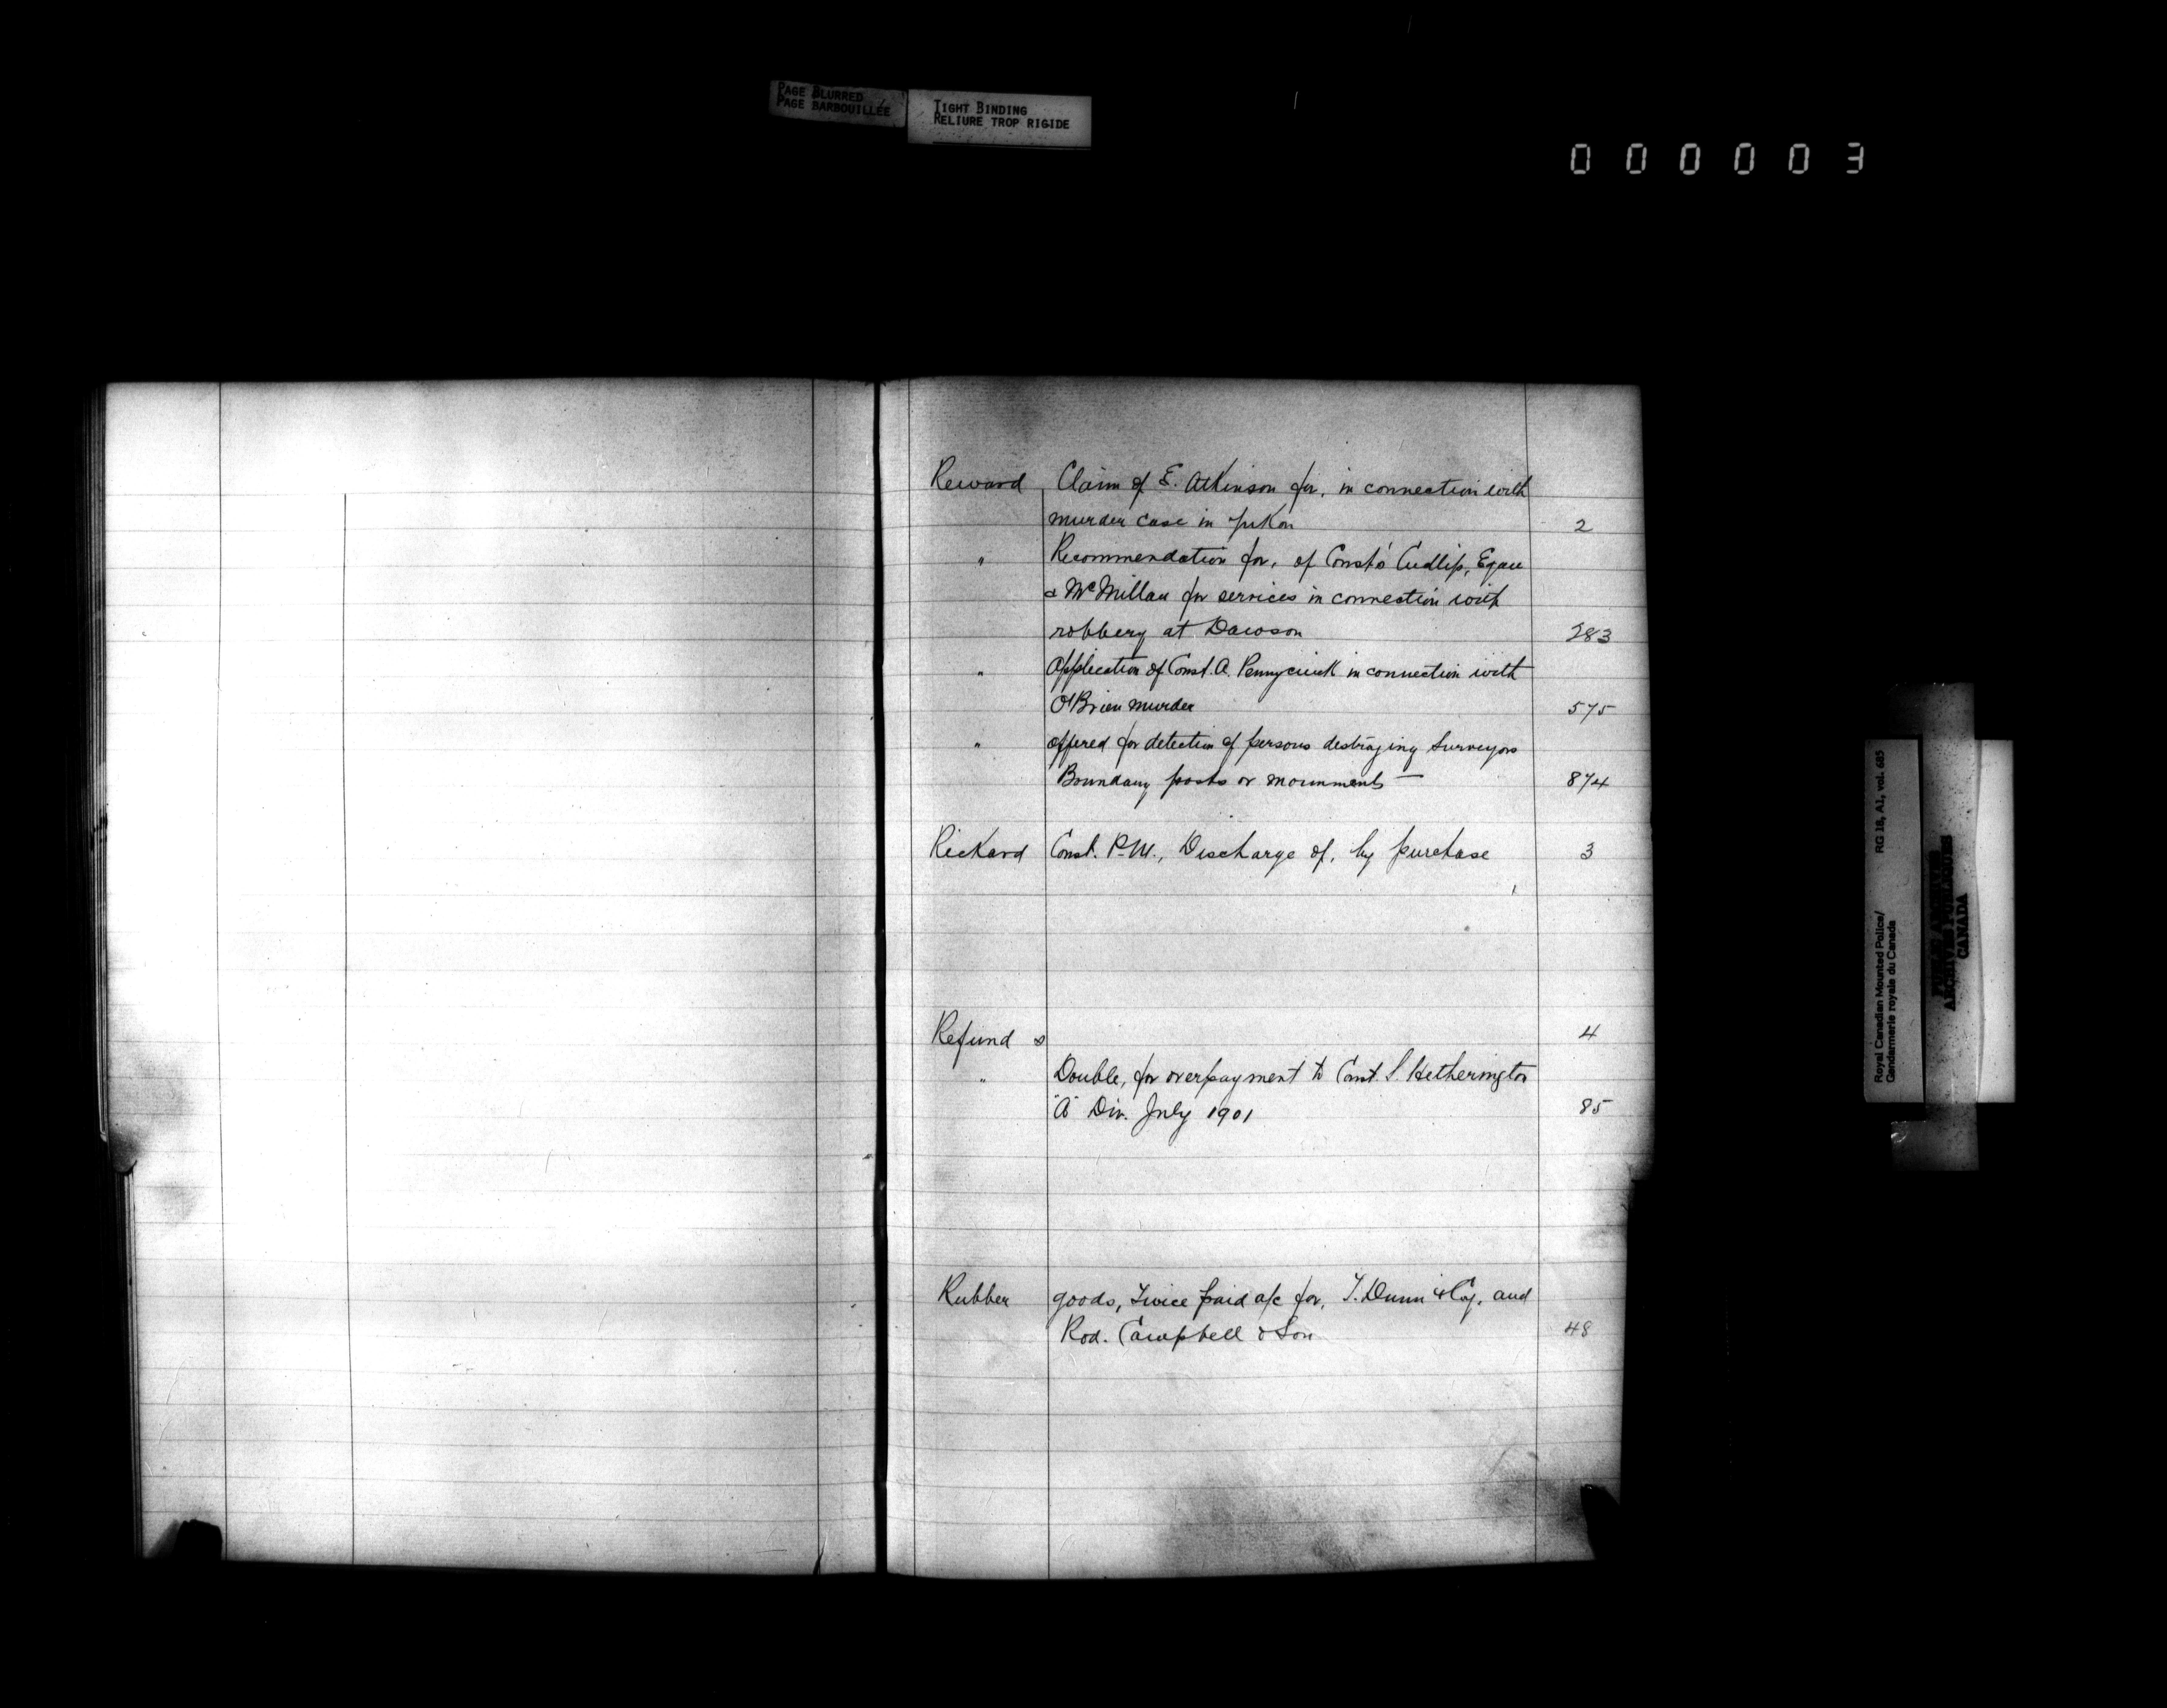 PAGE BLURRED
PAGE BARBOUILLÉE
TIGHT BINDING
RELIURE TROP RIGIDE
000003
Reward Claim of E. Atkinson for, in connection with
murder case in Yukon 2
" Recommendation for, of Const's Cudlip, Egan
& McMillan for services in connection with
robbery at Dawson 283
" Application of Const. A. Pennycuick in connection with
O'Brien murder 575
" offered for detection of persons destroying Surveyors
Boundary posts or monuments — 874
Rickard Const. P.M., Discharge of, by purchase 3
Refund s 4
" Double, for overpayment to Const. S. Hetherington
"A" Div. July 1901 85
Rubber goods, Twice paid a/c for, T. Dunn & Coy. and
Rod. Campbell & Son 48
Royal Canadian Mounted Police/ RG 18, A1, vol. 685
Gendarmerie royale du Canada
PUBLIC ARCHIVES
ARCHIVES PUBLIQUES
CANADA